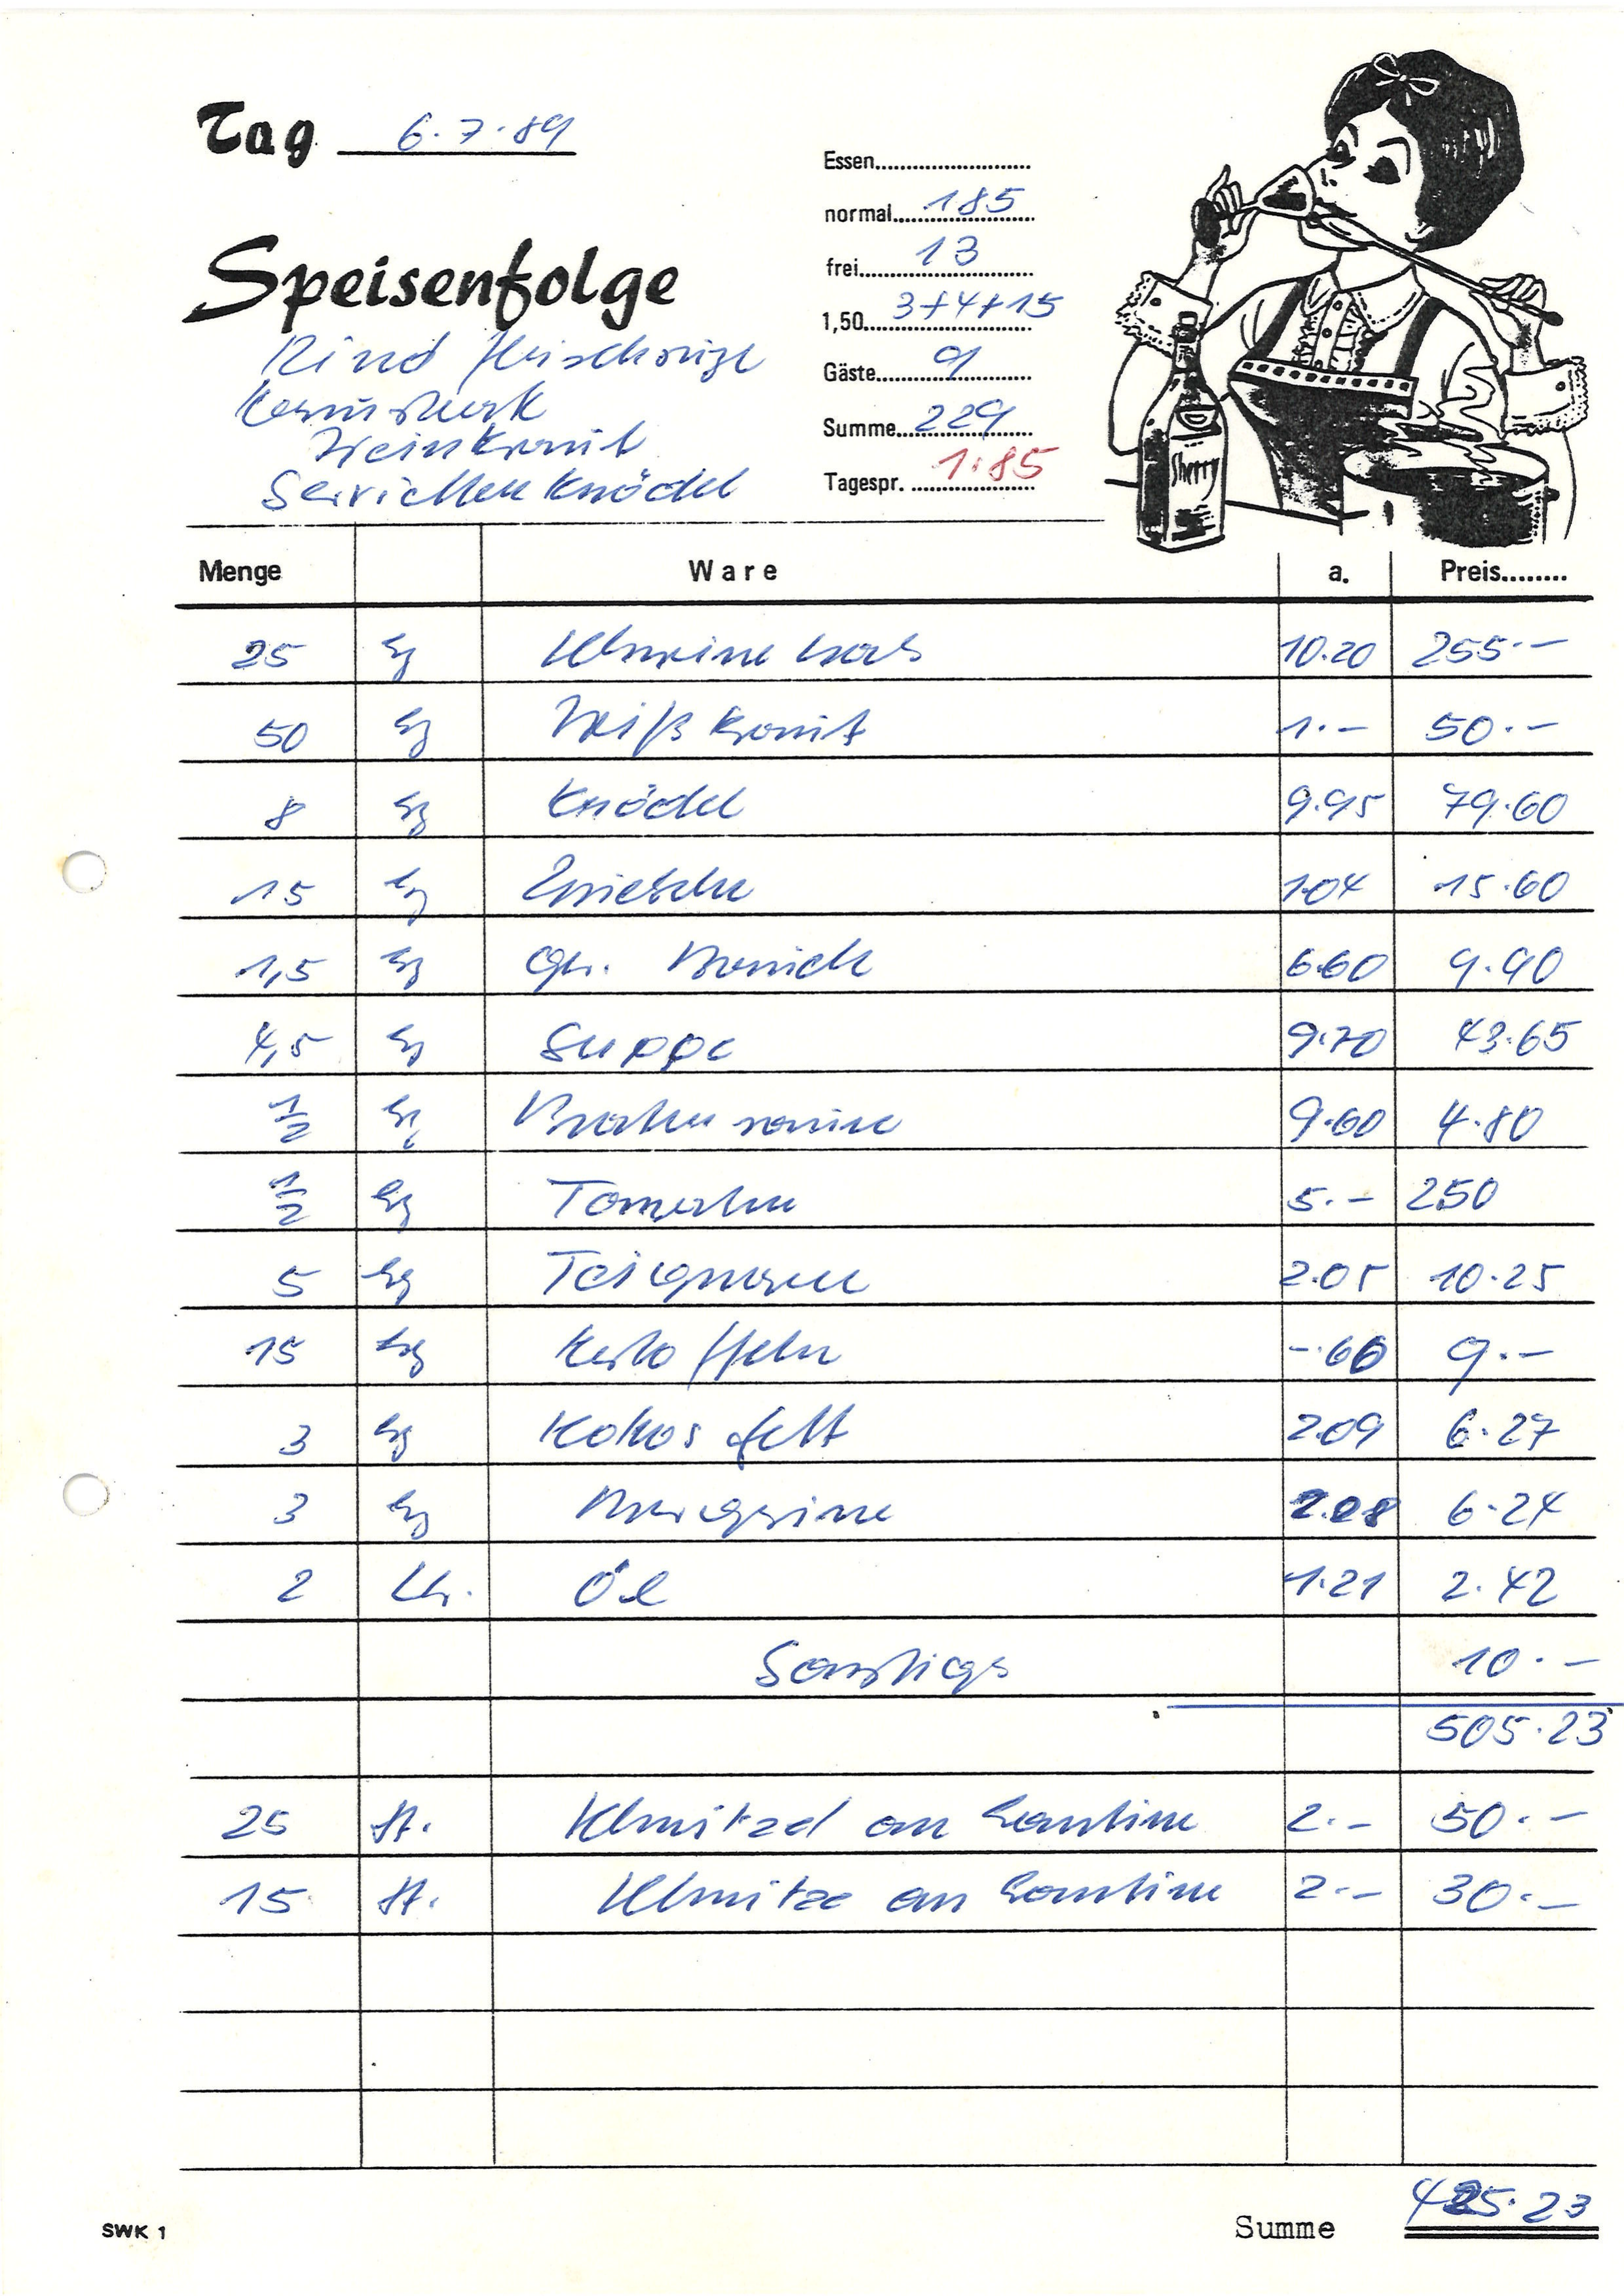 Tag 6.7.89
Essen
normal 185
frei 13
1,50 3+4+15
Gäste 9
Summe 229
Tagespr. 1.85
Speisenfolge
Rind
Weinkraut
Servietten Knödel
Sherry
Menge Ware a. Preis
25 kg 10.20 255.-
50 kg Weißkraut 1.- 50.-
8 kg Knödel 9.95 79.60
15 kg Zwiebeln 1.04 15.60
1,5 kg 6.60 9.90
4,5 kg Suppe 9.70 43.65
1/2 kg Braten 9.60 4.80
1/2 kg Tomaten 5.- 250
5 kg Teigwaren 2.05 10.25
15 kg Kartoffeln -.60 9.-
3 kg Kokosfett 2.09 6.27
3 kg Margarine 2.08 6.24
2 Ltr. Öl 1.21 2.42
Sonstiges 10.-
505.23
25 St. Schnitzel an Kantine 2.- 50.-
15 St. Schnitze an Kantine 2.- 30.-
SWK 1
Summe 425.23